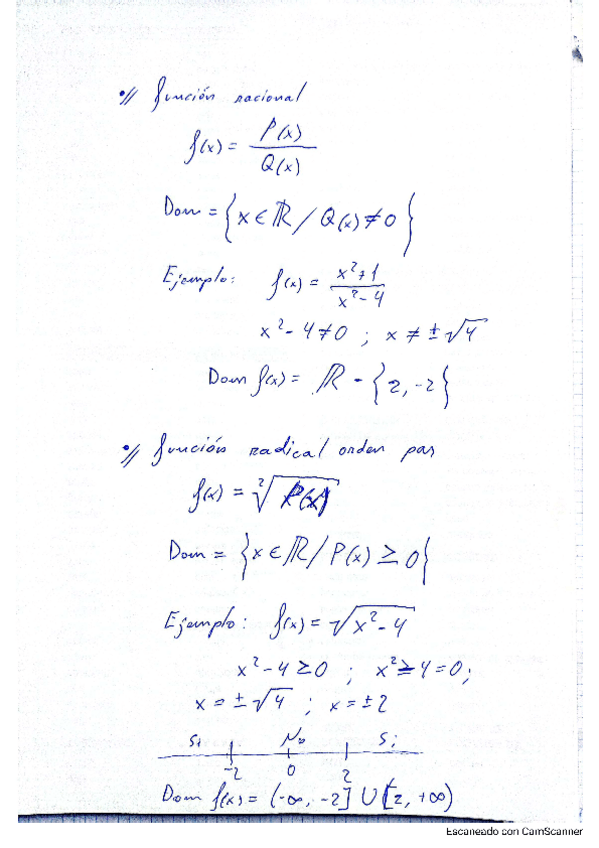 •// función racional
f(x) = P(x) / Q(x)
Dom = {x ∈ ℝ / Q(x) ≠ 0}
Ejemplo: f(x) = x²+1 / x²-4
x²-4≠0 ; x ≠ ±√4
Dom f(x) = ℝ - {2, -2}
•// función radical orden par
f(x) = ²√P(x)
Dom = {x ∈ ℝ / P(x) ≥ 0}
Ejemplo: f(x) = √x²-4
x²-4≥0 ; x²≥4=0;
x = ±√4 ; x = ±2
Si No Si
-2 0 2
Dom f(x) = (-∞, -2] U [2, +∞)
Escaneado con CamScanner